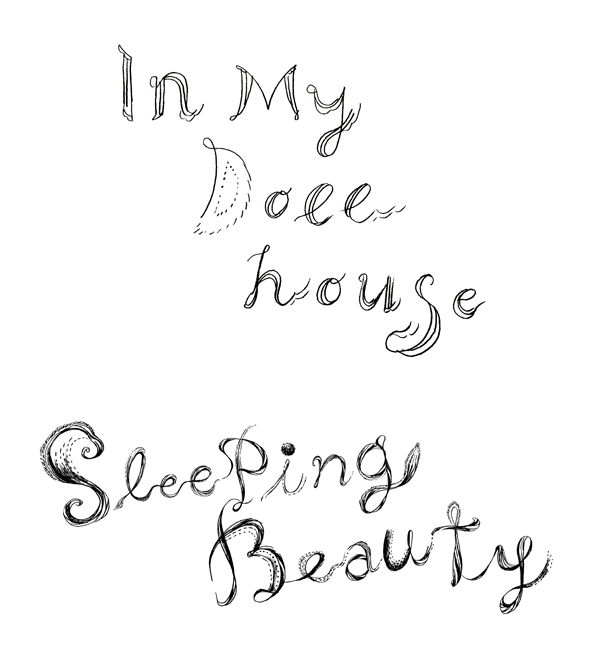 In My
Doll
house
Sleeping
Beauty